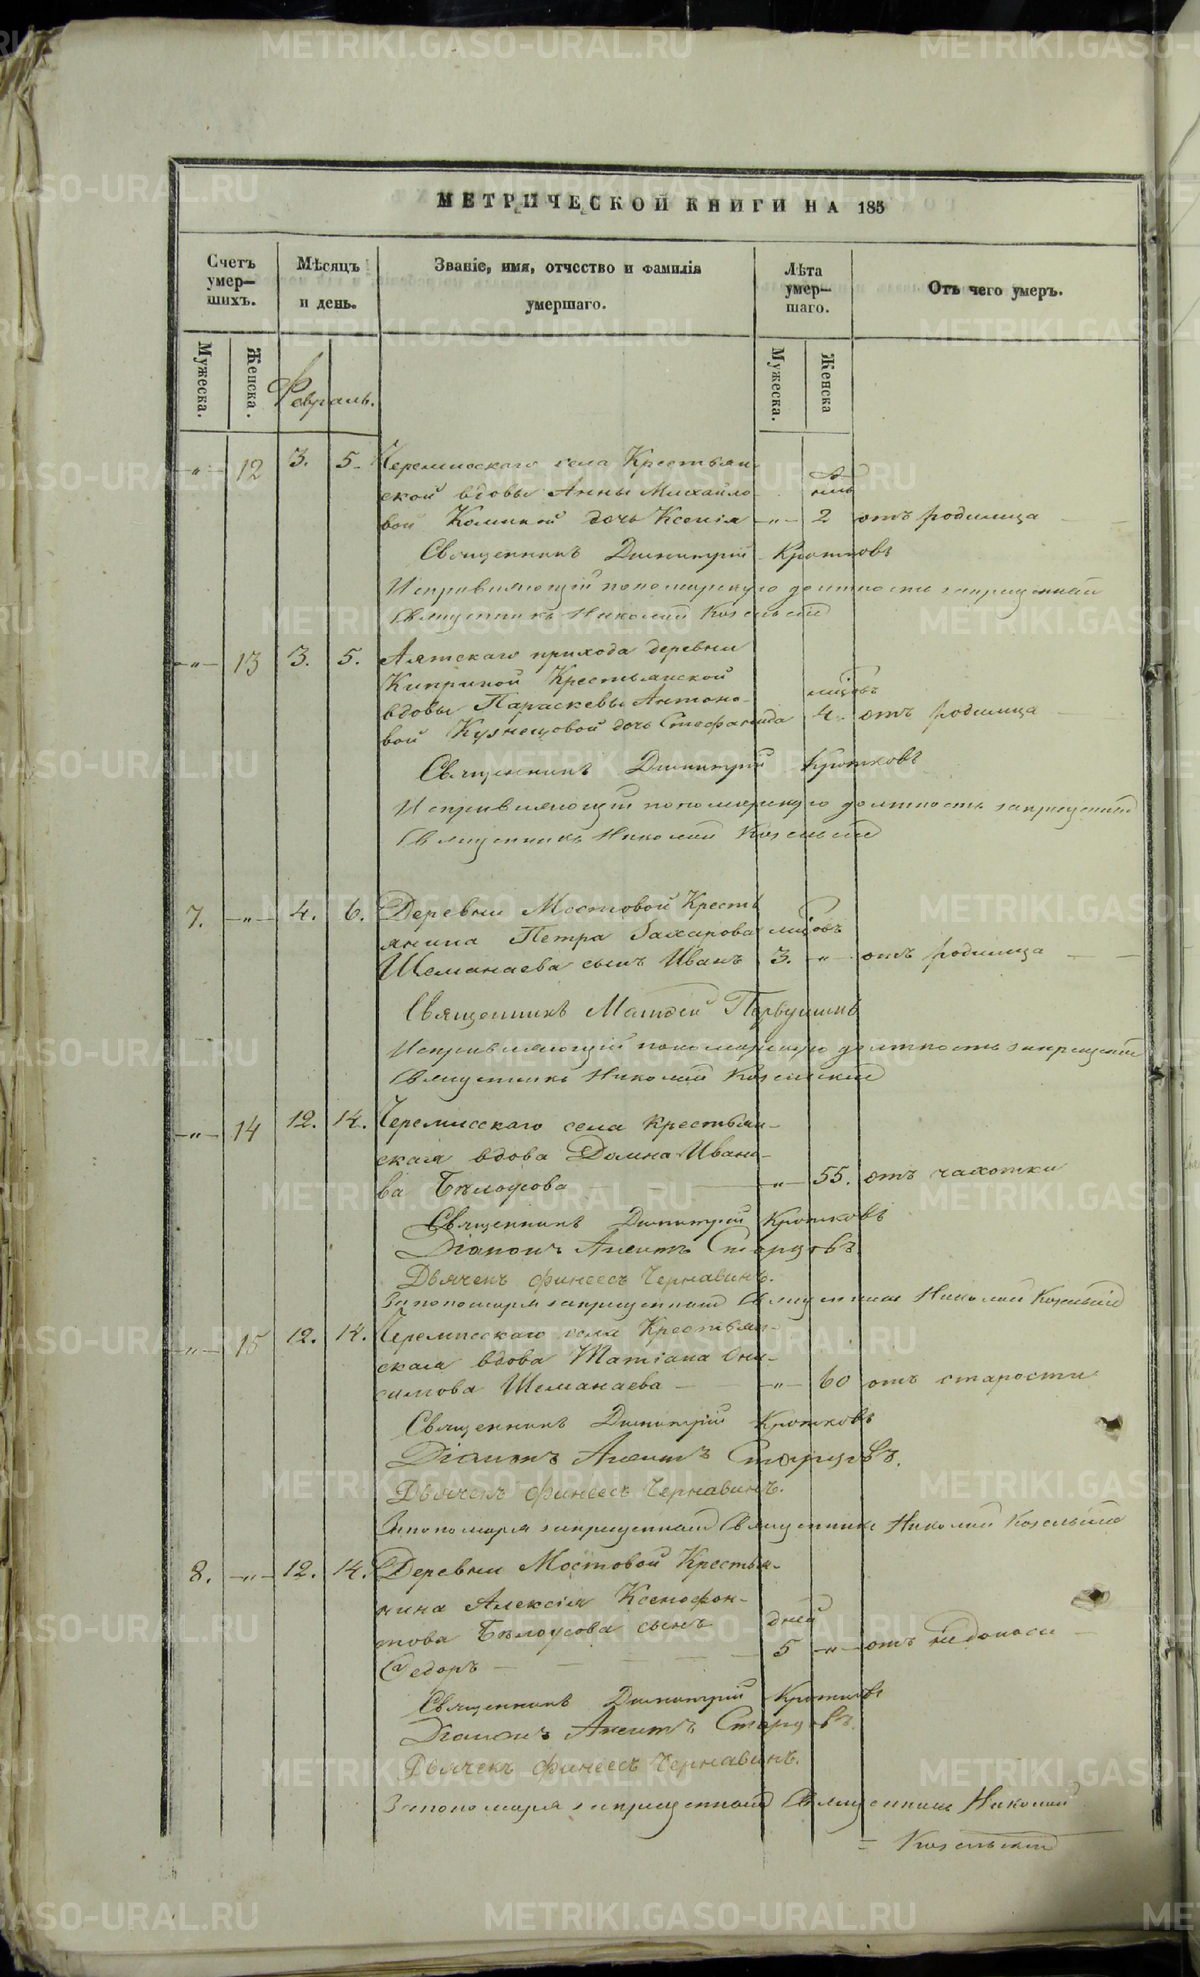 МЕТРИЧЕСКОЙ КНИГИ НА 185
Счетъ умер—шихъ.
Мѣсяцъ и день.
Званіе, имя, отчество и фамилія умершаго.
Лѣта умер—шаго.
Отъ чего умеръ.
Мужеска. Женска. Мужеска. Женска
Февраль.
„ 12 3. 5. Черемисскаго села Крестьян-
ской вдовы Анны Михайло-
вой дочь Ксенія „ 2 отъ родимца
Священникъ Димитрій Кротковъ
Исправляющій пономарскую должность запрещенный
Священникъ Николай Козельскій
„ 13 3. 5. Аятскаго прихода деревни
Киприной Крестьянской
вдовы Параскевы Антоно- мцовъ
вой Кузнецовой дочь Стефанида 4. отъ родимца
Священникъ Димитрій Кротковъ
Исправляющій пономарскую должность запрещенный
Священникъ Николай Козельскій
7. „ 4. 6. Деревни Мостовой Кресть
янина Петра Захарова мцовъ
Шеманаева сынъ Иванъ 3. „ отъ родимца
Священникъ Матѳей Первушинъ
Исправляющій пономарскую должность запрещенный
Священникъ Николай Козельскій
„ 14 12. 14. Черемисскаго села крестьян-
ская вдова Домна Ивано-
ва Бѣлоусова „ 55. отъ чахотки
Священникъ Димитрій Кротковъ
Діаконъ Стардовъ.
Дьячекъ Финеесъ Чернавинъ.
За пономаря запрещенный Священникъ Николай Козельскій
„ 15 12. 14. Черемисскаго села Крестьян-
ская вдова Татіана Они-
симова Шеманаева „ 60 отъ старости
Священникъ Димитрій Кротковъ
Діаконъ Стардовъ.
Дьячекъ Финеесъ Чернавинъ.
За пономаря запрещенный Священникъ Николай Козельскій
8. „ 12. 14. Деревни Мостовой Крестья-
нина Алексія Ксенофон-
това Бѣлоусова сынъ дней
Ѳедоръ 5 „ отъ недоноси
Священникъ Димитрій Кротковъ
Діаконъ Стардовъ.
Дьячекъ Финеесъ Чернавинъ.
За пономаря запрещенный Священникъ Николай
Козельскій
METRIKI.GASO-URAL.RU